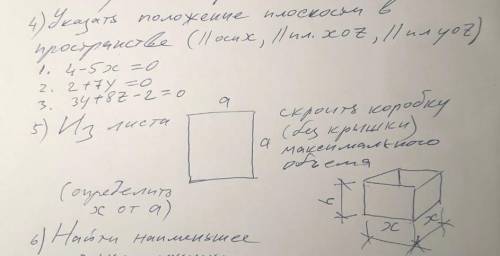 4) Указать положение плоскости в
пространстве (// оси x, // пл. xoz, // пл yoz)
1. 4-5x=0
2. 2+7y=0
3. 3y+8z-2=0
5) Из листа
a
a
скроить коробку
(без крышки)
максимального
объема
(определить
x от a)
h
x
x
6) Найти наименьшее